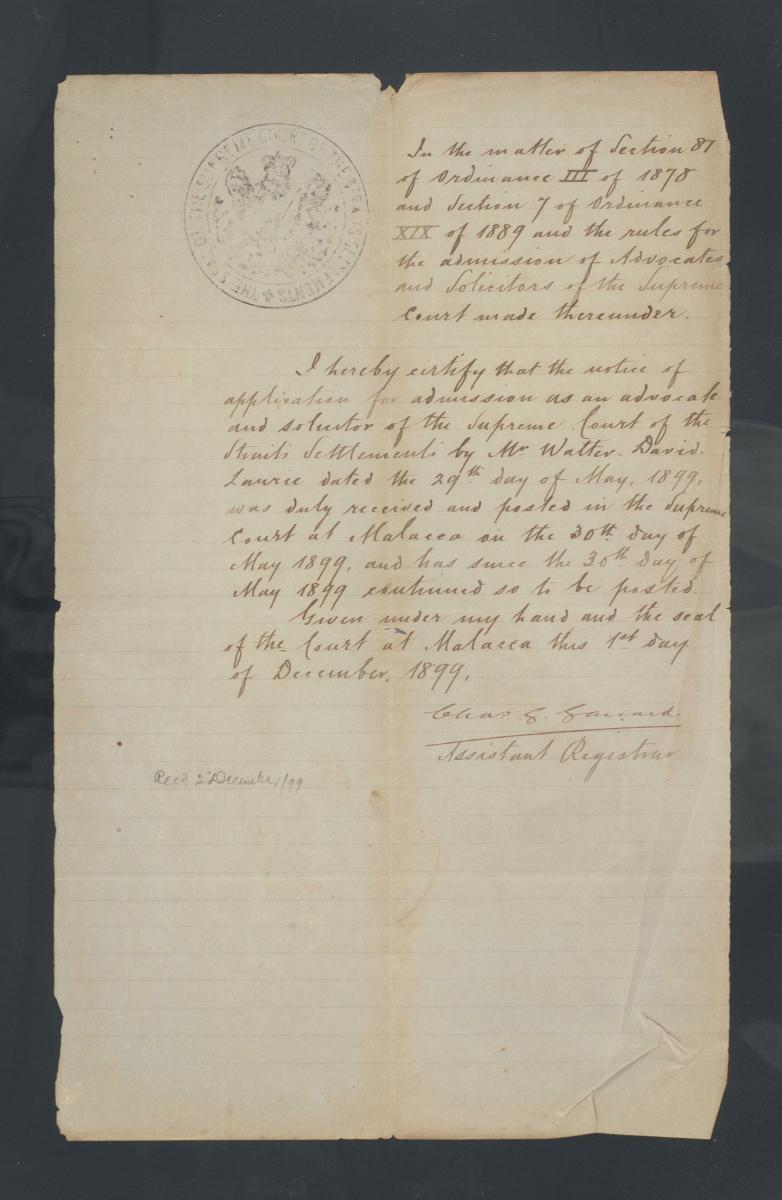 THE SEAL OF THE SUPREME COURT OF THE STRAITS SETTLEMENTS
In the matter of Section 87
of Ordinance III of 1878
and Section 7 of Ordinance
XIX of 1889 and the rules for
the admission of Advocates
and Solicitors of the Supreme
Court made thereunder.
I hereby certify that the notice of
application for admission as an advocate
and solicitor of the Supreme Court of the
Straits Settlements by Mr Walter. David.
Laurie dated the 29th day of May, 1899,
was duly received and posted in the Supreme
Court at Malacca on the 30th day of
May 1899, and has since the 30th day of
May 1899 continued so to be posted.
Given under my hand and the seal
of the Court at Malacca this 1st day
of December, 1899,
Chas. G.
Assistant Registrar
Recd 2 December/99